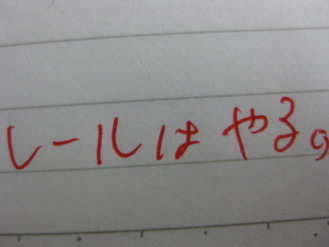 レールはやる。